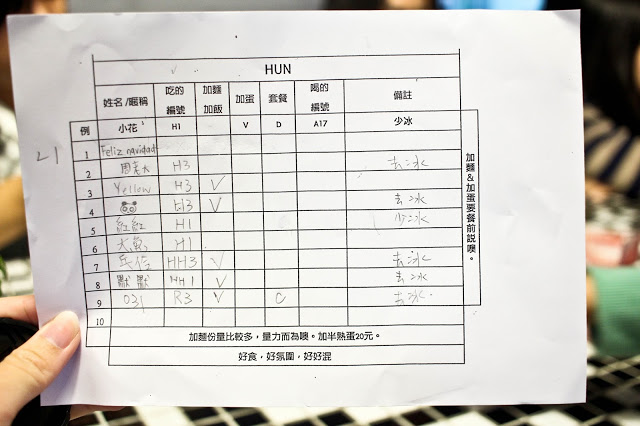 HUN
姓名/暱稱 吃的編號 加麵加飯 加蛋 套餐 喝的編號 備註
例 小花 H1 V D A17 少冰
21
1 Feliz navidad
2 H3 去冰
3 Yellow H3 V
4 H3 V 去冰
5 紅紅 H1 少冰
6 H1
7 HH3 V 去冰
8 HH1 V 去冰
9 031 R3 V C 去冰
10
加麵份量比較多，量力而為噢。加半熟蛋20元。
好食，好氛圍，好好混
加麵&加蛋要餐前說噢。